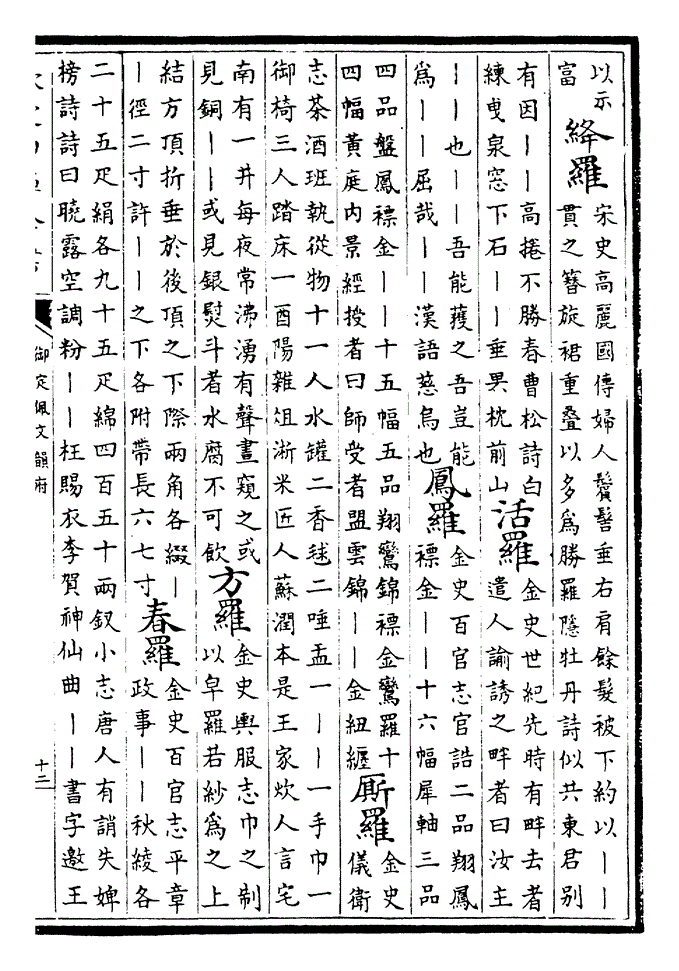 以示
富
絳羅
宋史高麗國傳婦人鬢髻垂右肩餘髮被下約以——
貫之簪旋裙重疊以多爲勝羅隱牡丹詩似共東君别
有因——高捲不勝春曹松詩白
練曳泉窓下石——垂果枕前山
活羅
金史世紀先時有畔去者
遣人諭誘之畔者曰汝主
——也——吾能獲之吾豈能
爲——屈哉——漢語慈烏也
鳳羅
金史百官志官誥二品翔鳳
褾金——十六幅犀軸三品
四品盤鳳褾金——十五幅五品翔鸞錦褾金鸞羅十
四幅黃庭内景經授者曰師受者盟雲錦——金紐纏
厮羅
金史
儀衛
志茶酒班執從物十一人水罐二香毬二唾盂一——一手巾一
御椅三人踏床一酉陽雜俎淅米匠人蘇潤本是王家炊人言宅
南有一井每夜常沸湧有聲晝窺之或
見銅——或見銀熨斗者水腐不可飲
方羅
金史輿服志巾之制
以皁羅若紗爲之上
結方頂折垂於後頂之下際兩角各綴—
—徑二寸許——之下各附帶長六七寸
春羅
金史百官志平章
政事——秋綾各
二十五疋絹各九十五疋綿四百五十兩釵小志唐人有誚失婢
榜詩詩曰曉露空調粉——枉賜衣李賀神仙曲——書字邀王
御定佩文韻府
十三